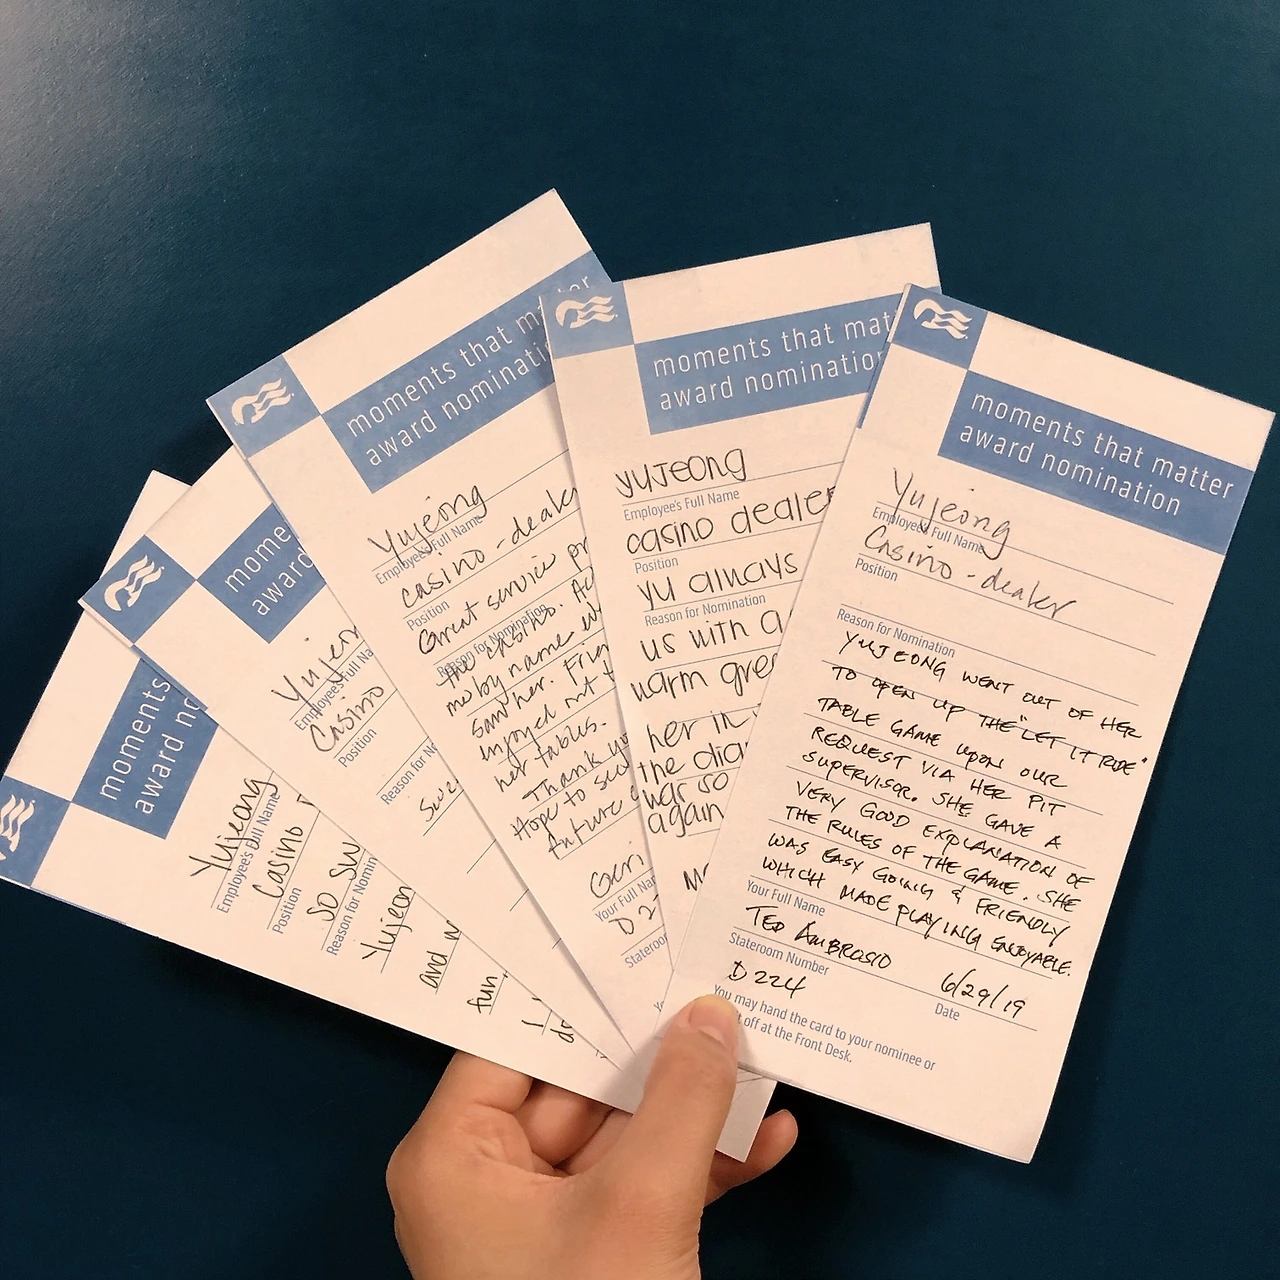 moments
award no
Yujeong
Employee's Full Name
Casino
Position
SO SW
Reason for Nomin
Yujeon
and
fun
mome
award
Yujeon
Employee's Full Na
Casino
Position
Reason for N
moments that matter
award nominati
Yujeong
Employee's Full Name
casino - dealer
Position
Great service pr
Reason for Nomination
the casino.
me by name
saw her.
enjoyed
her tables.
Thank yo
Hope to see
future
Geri
Your Full Na
D 2
Stateroo
moments that mat
award nomination
YUJEONG
Employee's Full Name
casino dealer
Position
yu always
Reason for Nomination
us with a
warm gre
her in
the
war so
again
moments that matter
award nomination
Yujeong
Employee's Full Name
Casino - dealer
Position
Reason for Nomination
YUJEONG WENT OUT OF HER
TO OPEN UP THE "LET IT RIDE"
TABLE GAME UPON OUR
REQUEST VIA HER PIT
SUPERVISOR. SHE GAVE A
VERY GOOD EXPLANATION OF
THE RULES OF THE GAME. SHE
WAS EASY GOING & FRIENDLY
WHICH MADE PLAYING ENJOYABLE.
Your Full Name
TED AMBROSIO
Stateroom Number
D224 6/29/19
Date
You may hand the card to your nominee or
off at the Front Desk.